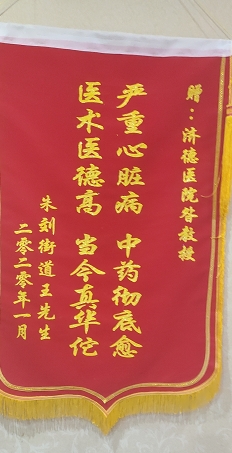 赠：济德医院昝教授
严重心脏病 中药彻底愈
医术医德高 当今真华佗
朱刘街道王先生
二零二零年一月